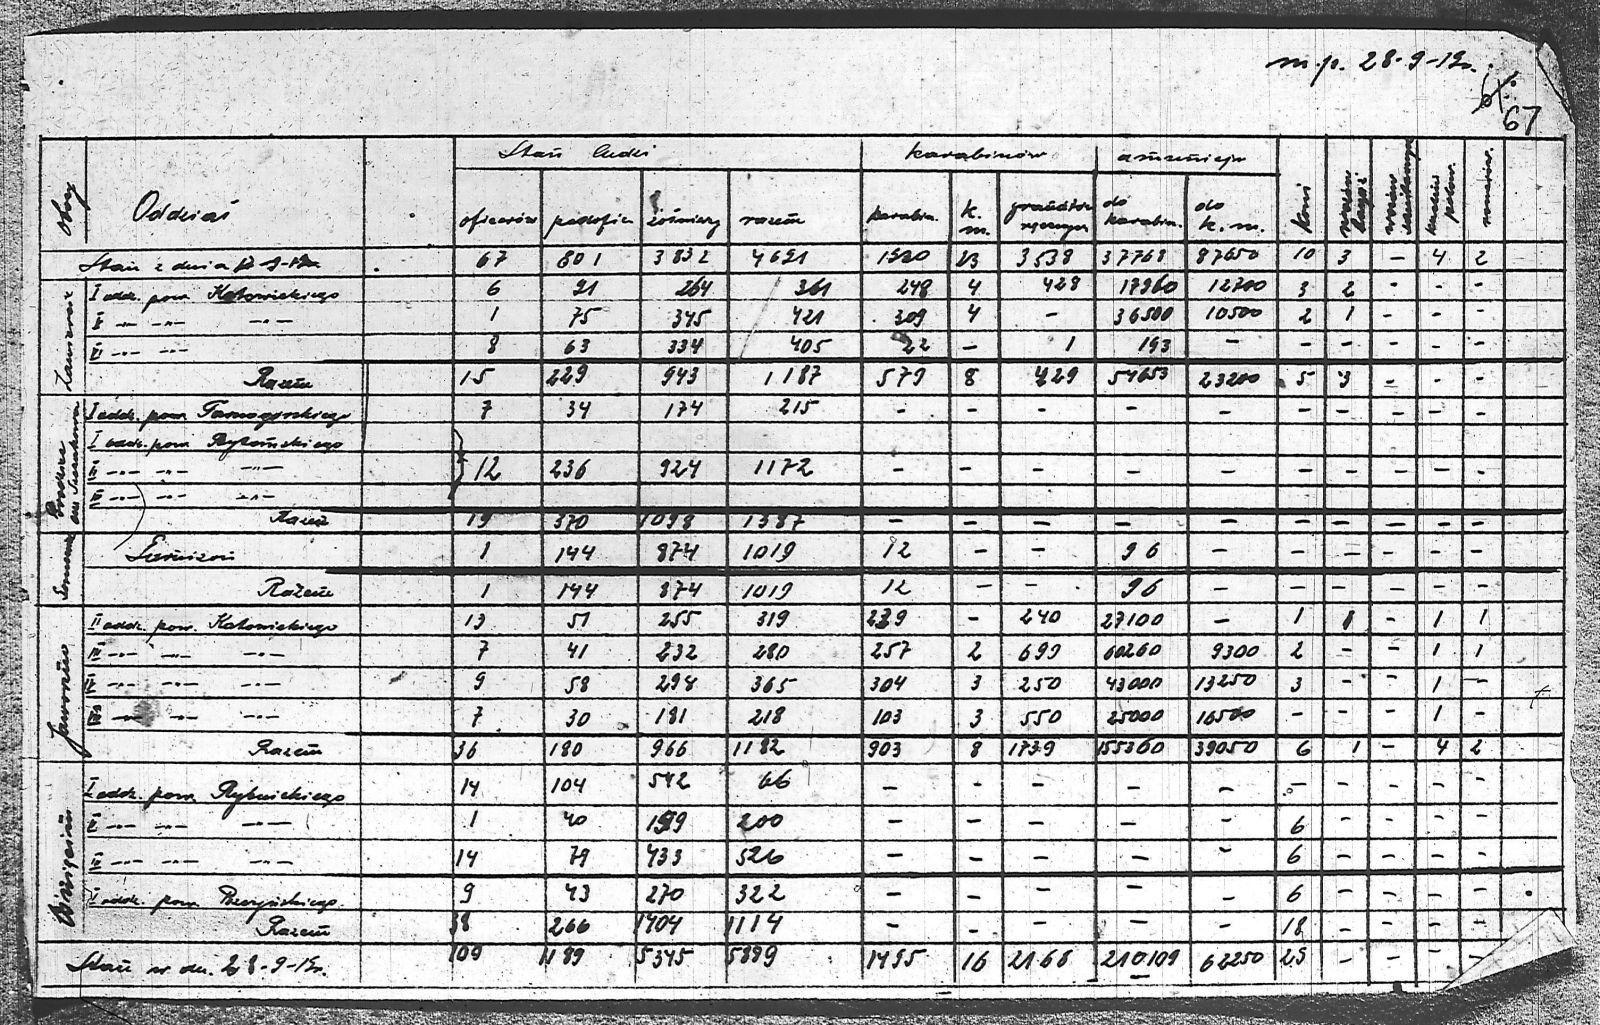 m.p. 28-9-19r.
67
Obóz Oddział Stan ludzi karabinów amunicja koni
oficerów podofic. żołnierzy razem karabin. k. m. granatów ręcznych do karabin. do k. m. kuchni polow.
Stan z dnia 67 801 3832 4691 1520 23 3538 37768 87650 10 3 – 4 2
I oddz. pow. Katowickiego 6 91 264 361 248 4 428 17960 12700 3 2 - - -
V –"– –"– –"– 1 75 345 421 309 4 – 36500 10500 2 1 - - -
VI –"– –"– 8 63 334 405 22 – 1 193 – – – – – –
Razem 15 229 943 1187 579 8 429 54653 23200 5 3 - - -
I oddz. pow. Tarnogórskiego 7 34 174 215 – – – – – – – – – –
I oddz. pow. Bytomskiego
II –"– –"– –"– 12 236 924 1172 – – – – – – – – – –
III –"– –"– –"–
Razem 19 370 1098 1387 – – – – – – – – – –
Garnizon 1 144 874 1019 12 – – 96 – – – – – –
Razem 1 144 874 1019 12 – – 96 – – – – – –
Jaworzno
II oddz. pow. Katowickiego 13 51 255 319 239 – 240 27100 – 1 1 – 1 1
III –"– –"– –"– 7 41 232 280 257 2 699 60260 9300 2 – – 1 1
IV –"– –"– –"– 9 58 298 365 304 3 250 43000 13250 3 – – 1 –
VII –"– –"– –"– 7 30 181 218 103 3 550 25000 16500 – – – 1 –
Razem 36 180 966 1182 903 8 1739 155360 39050 6 1 – 4 2
I oddz. pow. Rybnickiego 14 104 542 66 – – – – – – – – – –
II –"– –"– –"– 1 40 159 200 – – – – – 6 – – – –
III –"– –"– –"– 14 79 433 526 – – – – – 6 – – – –
I oddz. pow. Pszczyńskiego 9 43 270 322 – – – – – 6 – – – –
Razem 38 266 1404 1114 – – – – – 18 – – – –
Stan w dn. 28-9-19r. 109 1189 5345 5899 1495 16 2168 210109 62250 29 – – – –